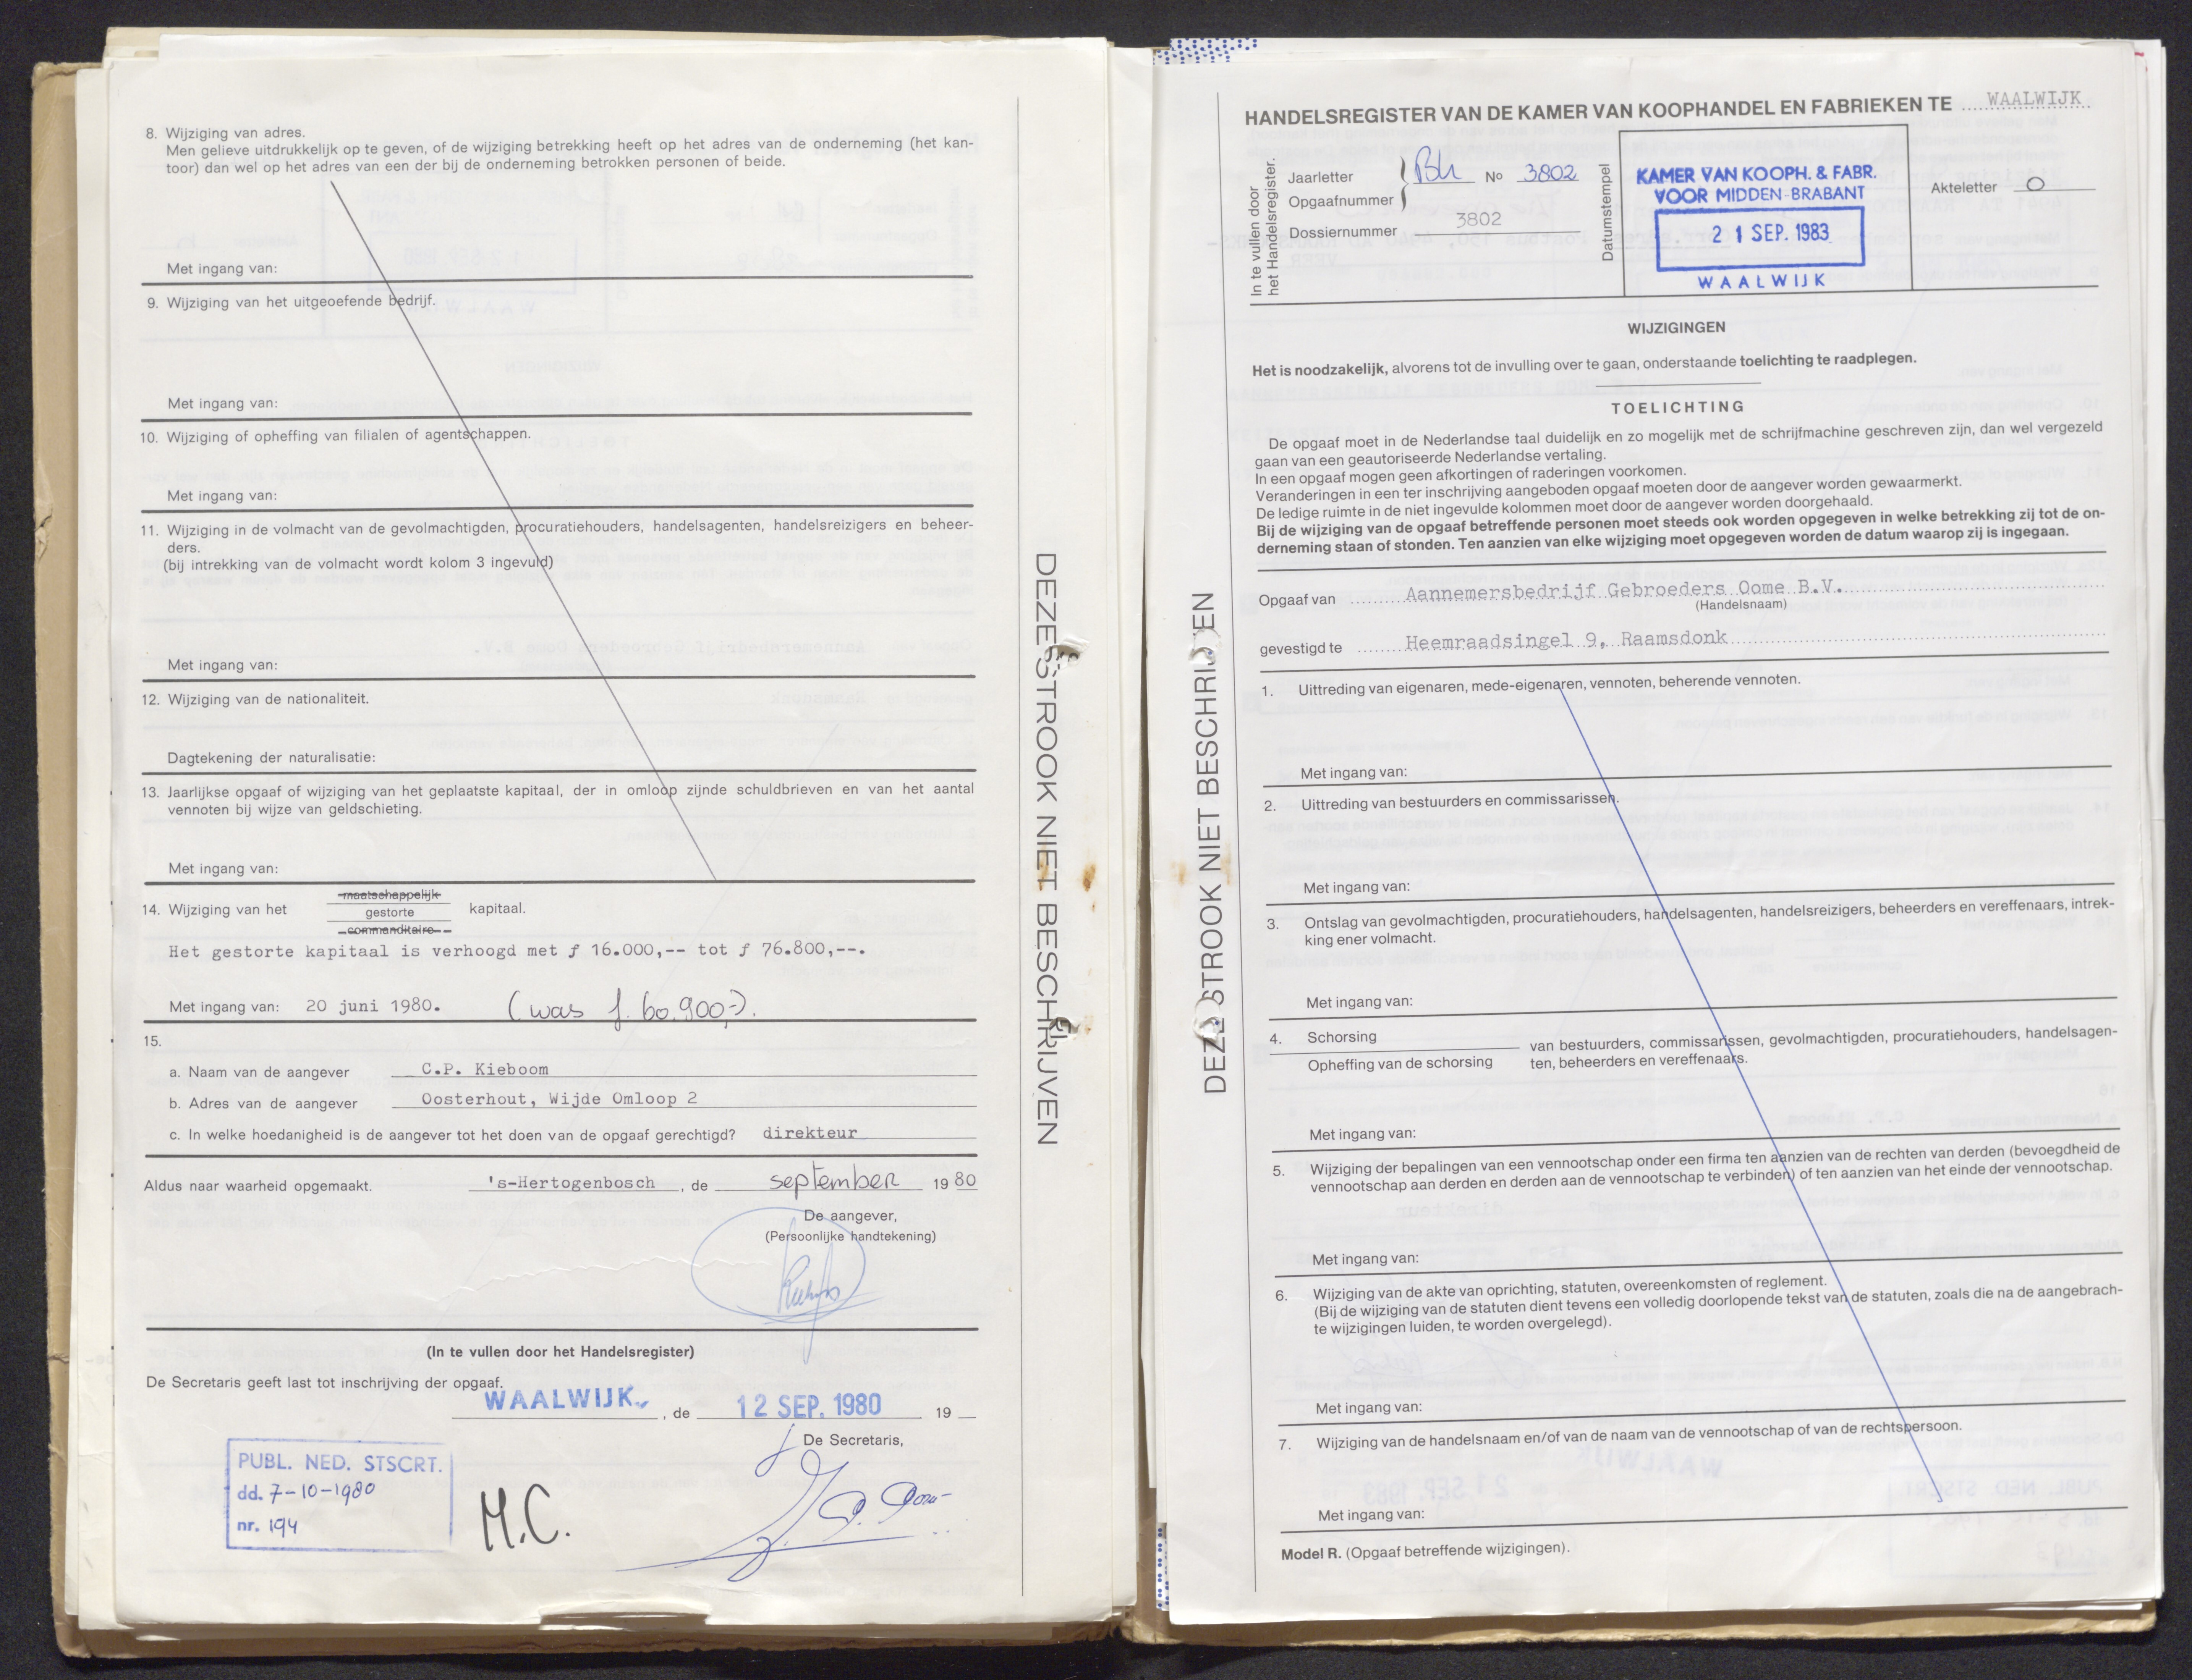 8. Wijziging van adres.
Men gelieve uitdrukkelijk op te geven, of de wijziging betrekking heeft op het adres van de onderneming (het kan-
toor) dan wel op het adres van een der bij de onderneming betrokken personen of beide.
Met ingang van:
9. Wijziging van het uitgeoefende bedrijf.
Met ingang van:
10. Wijziging of opheffing van filialen of agentschappen.
Met ingang van:
11. Wijziging in de volmacht van de gevolmachtigden, procuratiehouders, handelsagenten, handelsreizigers en beheer-
ders.
(bij intrekking van de volmacht wordt kolom 3 ingevuld)
Met ingang van:
12. Wijziging van de nationaliteit.
Dagtekening der naturalisatie:
13. Jaarlijkse opgaaf of wijziging van het geplaatste kapitaal, der in omloop zijnde schuldbrieven en van het aantal
vennoten bij wijze van geldschieting.
Met ingang van:
maatschappelijk
14. Wijziging van het gestorte kapitaal.
commanditaire
Het gestorte kapitaal is verhoogd met ƒ 16.000,-- tot ƒ 76.800,--.
Met ingang van: 20 juni 1980. (was f. 60.900,-).
15.
a. Naam van de aangever C.P. Kieboom
b. Adres van de aangever Oosterhout, Wijde Omloop 2
c. In welke hoedanigheid is de aangever tot het doen van de opgaaf gerechtigd? direkteur
Aldus naar waarheid opgemaakt. 's-Hertogenbosch, de september 1980
De aangever,
(Persoonlijke handtekening)
(In te vullen door het Handelsregister)
De Secretaris geeft last tot inschrijving der opgaaf.
WAALWIJK, de 12 SEP. 1980 19
De Secretaris,
PUBL. NED. STSCRT.
dd. 7-10-1980
nr. 194
M.C.
DEZE STROOK NIET BESCHRIJVEN
DEZE STROOK NIET BESCHRIJVEN
HANDELSREGISTER VAN DE KAMER VAN KOOPHANDEL EN FABRIEKEN TE WAALWIJK
In te vullen door
het Handelsregister.
Jaarletter
Opgaafnummer
Bh No 3802
Dossiernummer 3802
Datumstempel
KAMER VAN KOOPH. & FABR.
VOOR MIDDEN-BRABANT
21 SEP. 1983
WAALWIJK
Akteletter O
WIJZIGINGEN
Het is noodzakelijk, alvorens tot de invulling over te gaan, onderstaande toelichting te raadplegen.
TOELICHTING
De opgaaf moet in de Nederlandse taal duidelijk en zo mogelijk met de schrijfmachine geschreven zijn, dan wel vergezeld
gaan van een geautoriseerde Nederlandse vertaling.
In een opgaaf mogen geen afkortingen of raderingen voorkomen.
Veranderingen in een ter inschrijving aangeboden opgaaf moeten door de aangever worden gewaarmerkt.
De ledige ruimte in de niet ingevulde kolommen moet door de aangever worden doorgehaald.
Bij de wijziging van de opgaaf betreffende personen moet steeds ook worden opgegeven in welke betrekking zij tot de on-
derneming staan of stonden. Ten aanzien van elke wijziging moet opgegeven worden de datum waarop zij is ingegaan.
Opgaaf van Aannemersbedrijf Gebroeders Oome B.V.
(Handelsnaam)
gevestigd te Heemraadsingel 9, Raamsdonk
1. Uittreding van eigenaren, mede-eigenaren, vennoten, beherende vennoten.
Met ingang van:
2. Uittreding van bestuurders en commissarissen.
Met ingang van:
3. Ontslag van gevolmachtigden, procuratiehouders, handelsagenten, handelsreizigers, beheerders en vereffenaars, intrek-
king ener volmacht.
Met ingang van:
4. Schorsing
Opheffing van de schorsing
van bestuurders, commissarissen, gevolmachtigden, procuratiehouders, handelsagen-
ten, beheerders en vereffenaars.
Met ingang van:
5. Wijziging der bepalingen van een vennootschap onder een firma ten aanzien van de rechten van derden (bevoegdheid de
vennootschap aan derden en derden aan de vennootschap te verbinden) of ten aanzien van het einde der vennootschap.
Met ingang van:
6. Wijziging van de akte van oprichting, statuten, overeenkomsten of reglement.
(Bij de wijziging van de statuten dient tevens een volledig doorlopende tekst van de statuten, zoals die na de aangebrach-
te wijzigingen luiden, te worden overgelegd).
Met ingang van:
7. Wijziging van de handelsnaam en/of van de naam van de vennootschap of van de rechtspersoon.
Met ingang van:
Model R. (Opgaaf betreffende wijzigingen).